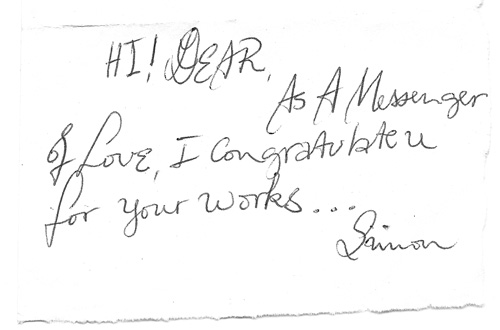 HI! DEAR,
As A Messenger
Of Love, I Congratulate u
for your works...
Simon